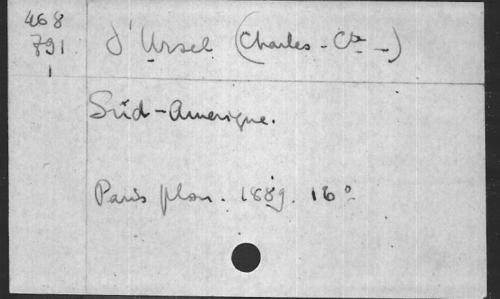 468
791
1
d'Ursel (Charles - Cte -)
Sud-Amerique.
Paris Plon. 1889. 16º